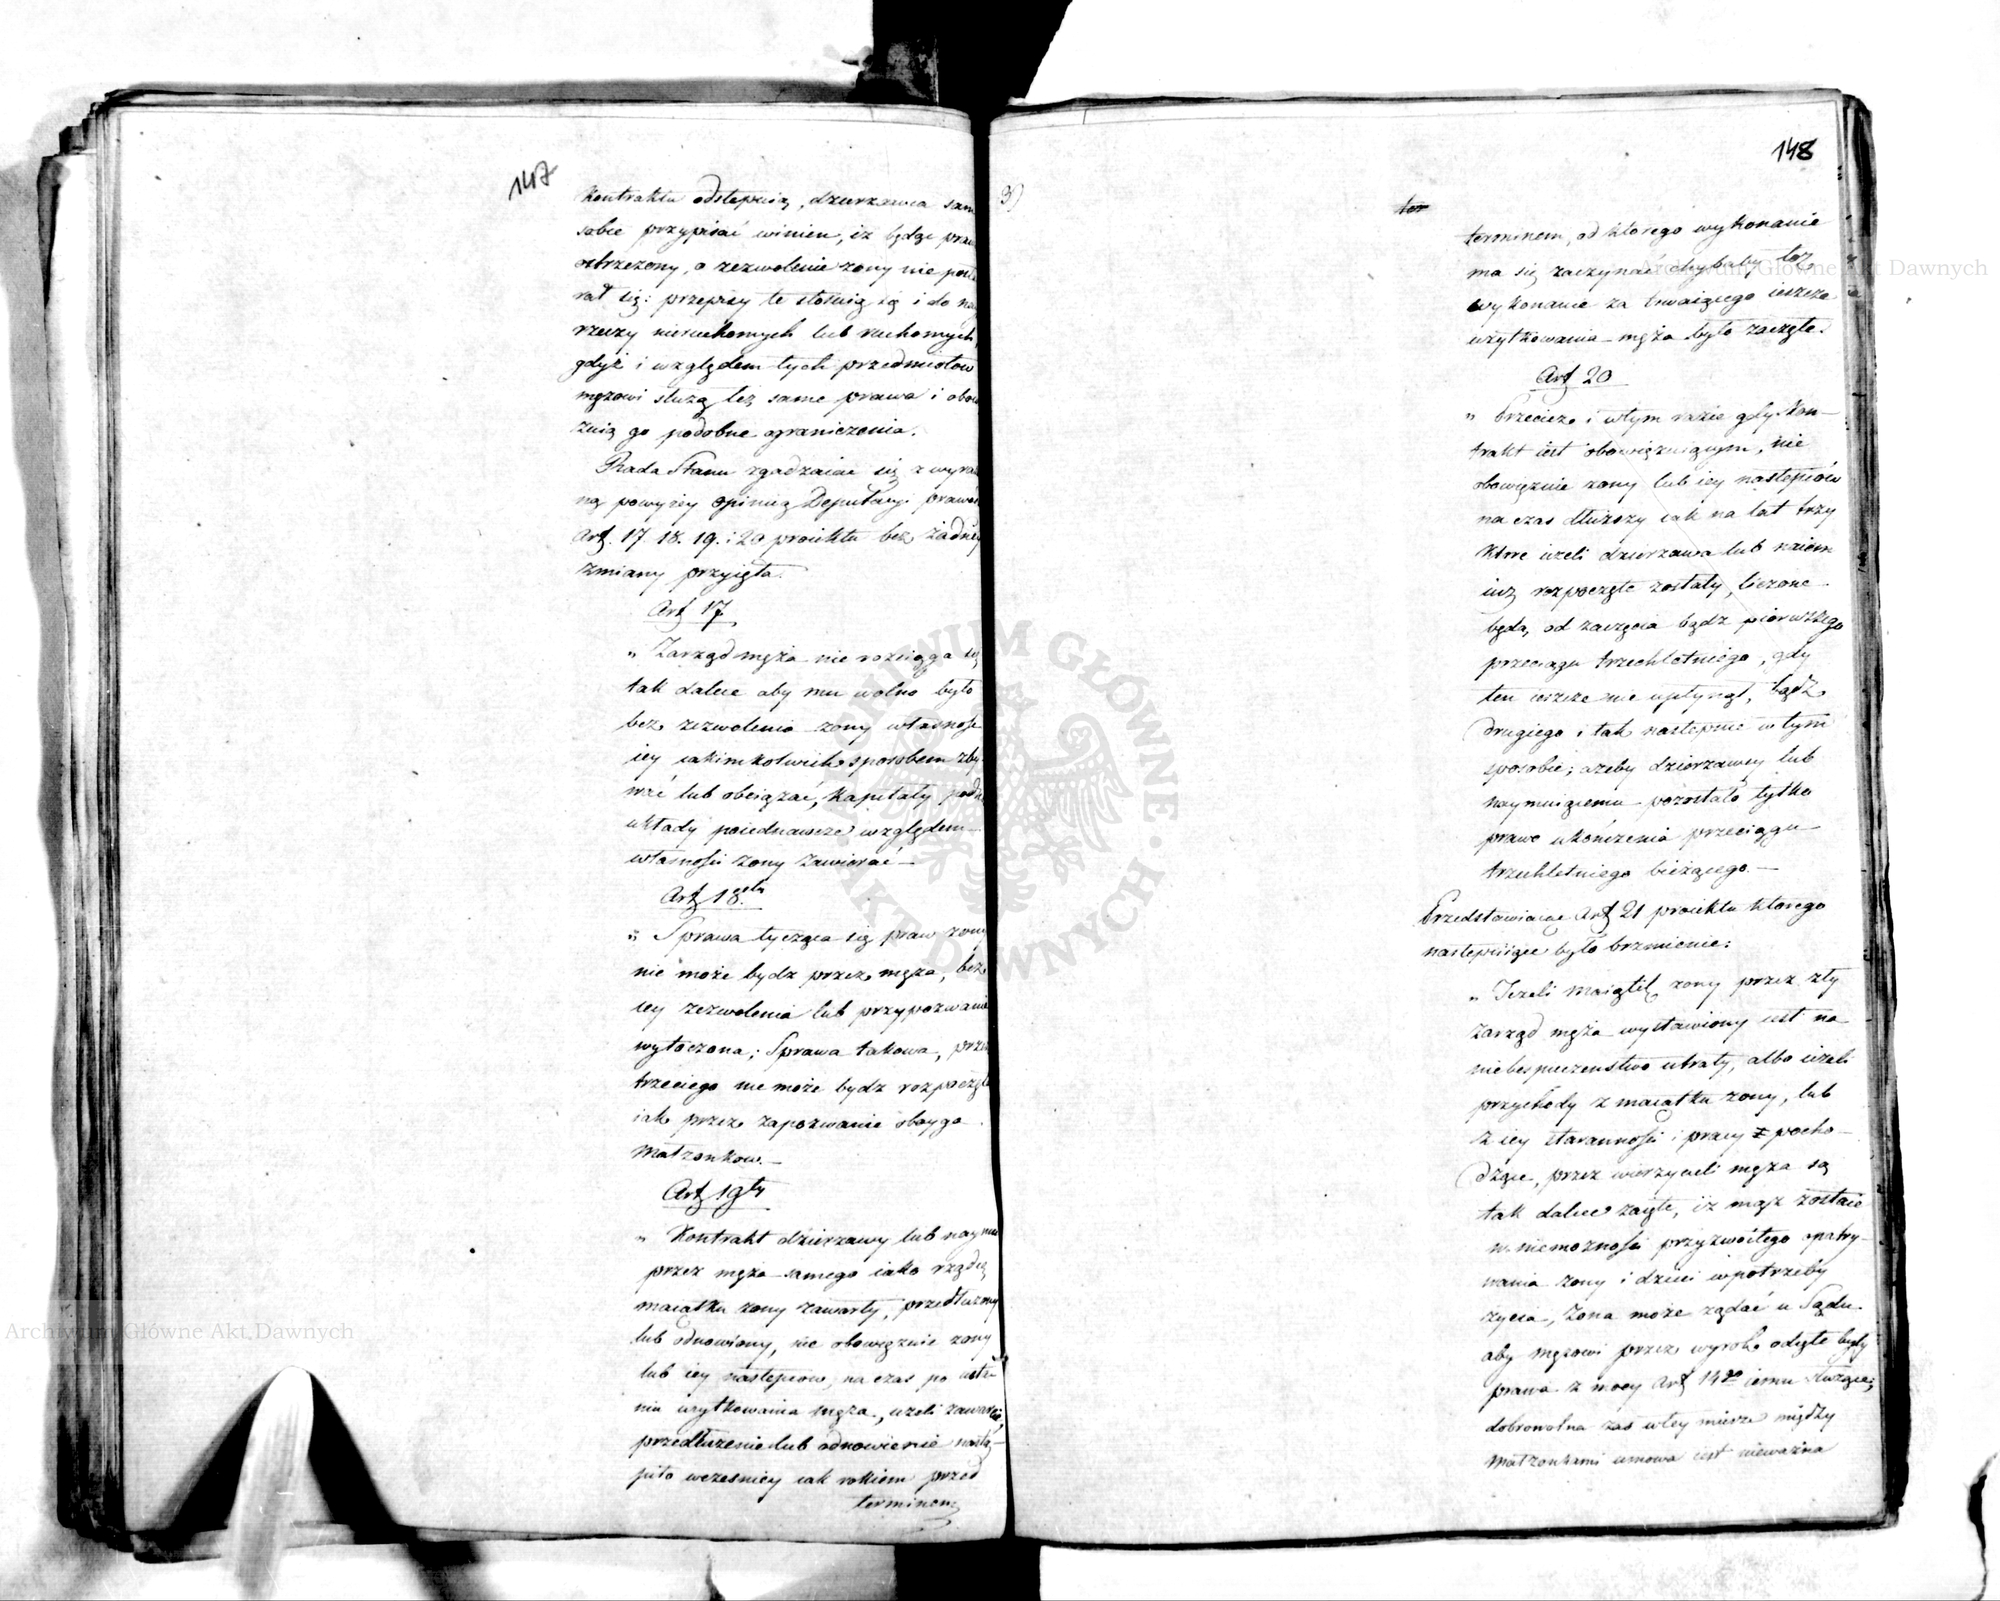 147
kontraktu odstępuią, dzierzawca sam
sobie przypisać winien, iż będąc prze
ostrzeżony, o zezwolenie zony nie posta
rał się: przepisy te stosuią się i do na
rzeczy nieruchomych lub ruchomych,
gdyż i względem tych przedmiotow
mężowi służą też same prawa i obow
zuią go podobne ograniczenia.
Rada Stanu zgadzaiąc się z wyra
ną powyżey opinią Deputacyi prawa
Art. 17. 18. 19. i 20 proiektu bez żadney
zmiany przyięła.
Art 17
" Zarząd męża nie rozciąga się
tak dalece aby mu wolno było
bez zezwolenia zony własność
iey iakimkolwiek sposobem zby
wać lub obciążać, kapitały podn
układy poiednawcze względem
własności zony zawierać —
Art 18ty
" Sprawa tycząca się praw zony
nie może bydz przez męza, bez
iey zezwolenia lub przypozwania
wytoczona; Sprawa takowa, prze
trzeciego nie może bydz rozpoczęta
iak przez zapozwanie oboyga
Małzonkow. —
Art 19ty
" Kontrakt dzierzawy lub naymu
przez męża samego iako rządcę
maiątku zony zawarty, przedłużony
lub odnowiony, nie obowięzuie zony
lub iey następcow, na czas po usta
niu użytkowania męża, ieżeli zawarcie,
przedłużenie lub odnowienie nastą-
piło wcześniey iak rokiem przed
terminem
3)
148
ter
terminem, od którego wykonanie
ma się zaczynać chybaby toż
wykonanie za trwaiącego ieszcze
użytkowania męża było zaczęte.
Art 20
" Przecież i w tym razie gdy kon-
trakt iest obowięzuiącym, nie
obowięzuie zony lub iey następców
na czas dłuższy iak na lat trzy
które ieżeli dzierzawa lub naiem
iuż rozpoczęte zostały, liczone
będą, od zaczęcia bądz pierwszego
przeciągu trzechletniego, gdy
ten ieszcze nie upłynął, bądz
drugiego i tak następnie w tym
sposobie; azeby dzierzawcy lub
naymuiącemu pozostało tylko
prawo ukończenia przeciągu
trzechletniego bieżącego. —
Przedstawiaiąc Art 21 proiektu którego
następuiące było brzmienie:
" Jeżeli maiątek zony przez zły
zarząd męża wystawiony iest na
niebespieczenstwo utraty, albo ieżeli
przychody z maiątku zony, lub
z iey staranności i pracy pocho-
dzące, przez wierzycieli męża są
tak dalece zaięte, iż mąż zostaie
w niemożności przyzwoitego opatry-
wania zony i dzieci w potrzeby
życia, Zona może żądać u Sądu
aby mężowi przez wyrok odięte były
prawa z mocy Art 14go iemu służące;
dobrowolna zaś w tey mierze między
Małzonkami umowa iest nieważna
ARCHIWUM GŁÓWNE AKT DAWNYCH
Archiwum Główne Akt Dawnych
Archiwum Główne Akt Dawnych